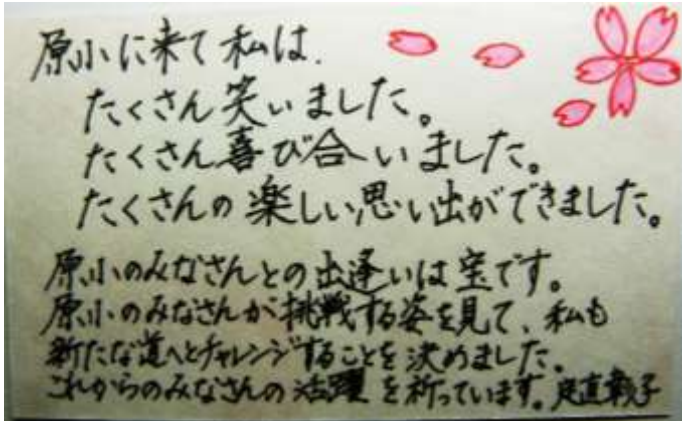 原小に来て私は、
たくさん笑いました。
たくさん喜び合いました。
たくさんの楽しい思い出ができました。
原小のみなさんとの出逢いは宝です。
原小のみなさんが挑戦する姿を見て、私も
新たな道へとチャレンジすることを決めました。
これからのみなさんの活躍を祈っています。